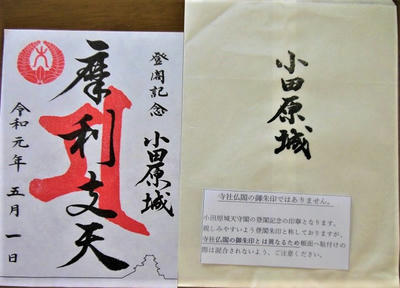 登閣記念
小田原城
摩利支天
令和元年 五月 一日
小田原城
寺社仏閣の御朱印ではありません。
小田原城天守閣の登閣記念の印章となります。
親しみやすいよう登閣朱印と称しておりますが、
寺社仏閣の御朱印とは異なるため帳面へ貼付けの
際は混合されないよう、ご注意ください。